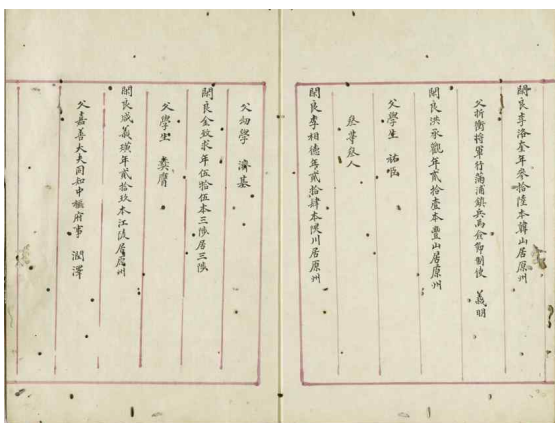 閑良李洛奎年參拾陸本韓山居原州
父折衝將軍行蒲浦鎭兵馬僉節制使 義明
閑良洪承觀年貳拾壹本豊山居原州
父學生 祐
參等參人
閑良李相德年貳拾肆本陜川居原州
父幼學 濟基
閑良金致求年伍拾伍本三陟居三陟
父學生 龔膺
閑良咸義璜年貳拾玖本江陵居原州
父嘉善大夫同知中樞府事 潤澤